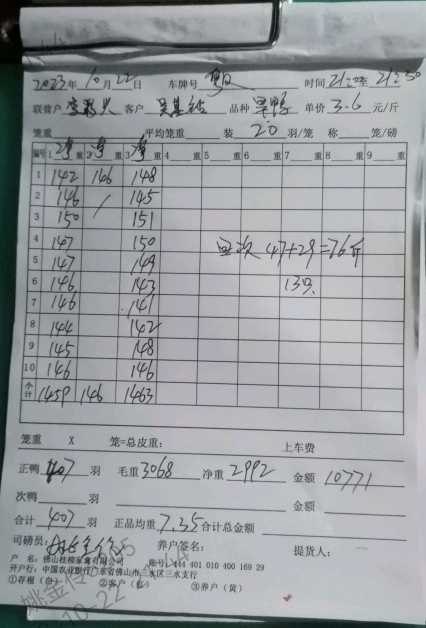 2023年10月22日 车牌号 时间21:00至21:50
联营户 客户 品种 单价3.6元/斤
笼重 平均笼重 装20羽/笼 称 笼/磅
编号 1 重 2 重 3 重 4 重 5 重 6 重 7 重 8 重 9 重
1 142 146 148
2 146 / 145
3 150 151
4 147 150
5 147 149
6 146 143
7 146 141
8 144 142
9 145 148
10 146 146
小计 1459 146 1463
47+29=76斤
13只
笼重 X 笼=总皮重: 上车费
正鸭407羽 毛重3068 净重2992 金额10771
次鸭 羽 金额
合计407羽 正品均重7.35 合计总金额
司磅员: 养户签名: 提货人:
开户行: 中国农业银行广东省佛山市三水区三水支行
①存根(白) ②客户(红) ③养户(黄)